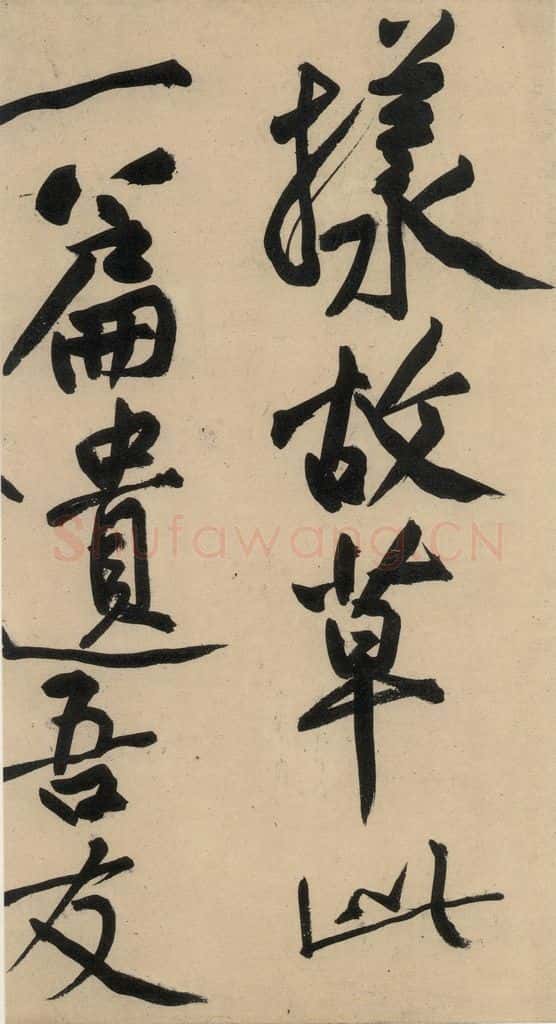 樣故草此
一篇遺吾友
Shufawang.CN